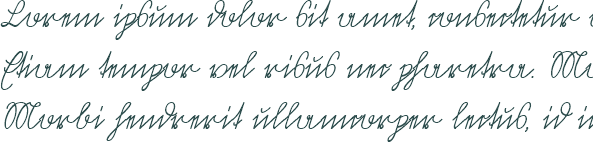 Lorem ipsum dolor sit amet, consectetur
Etiam tempor vel risus nec pharetra. M
Morbi hendrerit ullamcorper lectus, id